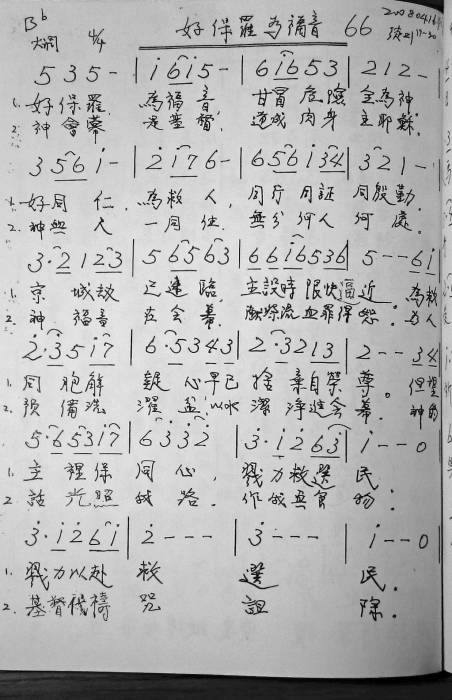 B♭ 大調 4/4 好保羅為福音 66 20080416
5 3 5 - | i 6 i 5 - | 6 i 6 5 3 | 2 1 2 -
1. 好保羅 為福音 甘冒危險 全為神;
2. 神會幕 是基督, 道成肉身 主耶穌.
3 5 6 i - | 2 i 7 6 - | 6 5 6 i 3 4 | 3 2 1 -
1. 好同仁, 為救人, 同行同証 同殷勤
2. 神與人 一同住, 無分何人 何處.
3 · 2 1 2 3 | 5 6 5 6 3 | 6 6 i 6 5 3 6 | 5 - - 6 i
1. 京城故 已連臨 主設時限快逼近. 為救
2. 神福音 在會幕, 流血罪得恕. 為人
2 · 3 5 i 7 | 6 · 5 3 4 3 | 2 · 3 2 1 3 | 2 - - 3 4
1. 同胞解 疑心早已 捨棄自榮尊. 但望
2. 預備洗 濯盆以水 潔淨進會幕. 神的
5 · 6 5 3 i 7 | 6 3 3 2 | 3 · i 2 6 3 | i - - 0
1. 主裡保 同心, 戮力救選 民.
2. 話光照 我路. 作我與食 物.
3 · i 2 6 i | 2 - - - | 3 - - - | i - - 0
1. 戮力以赴 救 選 民.
2. 基督代禱 咒 詛 除.